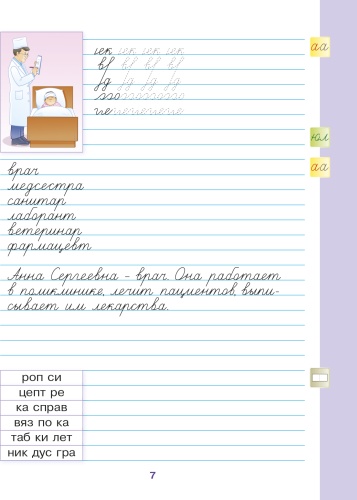 аа
юл
аа
врач
медсестра
санитар
лаборант
ветеринар
фармацевт
Анна Сергеевна – врач. Она работает
в поликлинике, лечит пациентов, выпи-
сывает им лекарства.
роп си
цепт ре
ка справ
вяз по ка
таб ки лет
ник дус гра
7